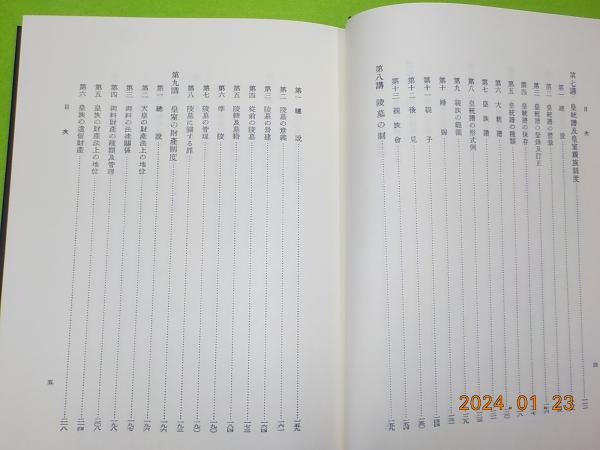 目次
第七講 皇統譜及皇室親族制度
第一 總說
第二 皇統譜の意義
第三 皇統譜の登錄及訂正
第四 皇統譜の保存
第五 皇統譜の種類
第六 大統譜
第七 皇族譜
第八 皇統譜の形式例
第九 親族の範圍
第十 婚姻
第十一 親子
第十二 後見
第十三 親族會
第八講 陵墓の制
四
第一 總說 一五九
第二 陵墓の意義 一六一
第三 陵墓の營建 一六四
第四 從前の陵墓 一七三
第五 陵籍及墓籍 一八四
第六 準陵 一九〇
第七 陵墓の管理 一九〇
第八 陵墓に關する罪 一九三
第九講 皇室の財產制度
第一 總說 一九六
第二 天皇の財產法上の地位 一九六
第三 御料の法律關係 一九七
第四 御料財產の種類及管理 一九八
第五 皇族の財產法上の地位 二〇八
第六 皇族の遺留財產 二一四
目次 二一八
五
2024.01.23